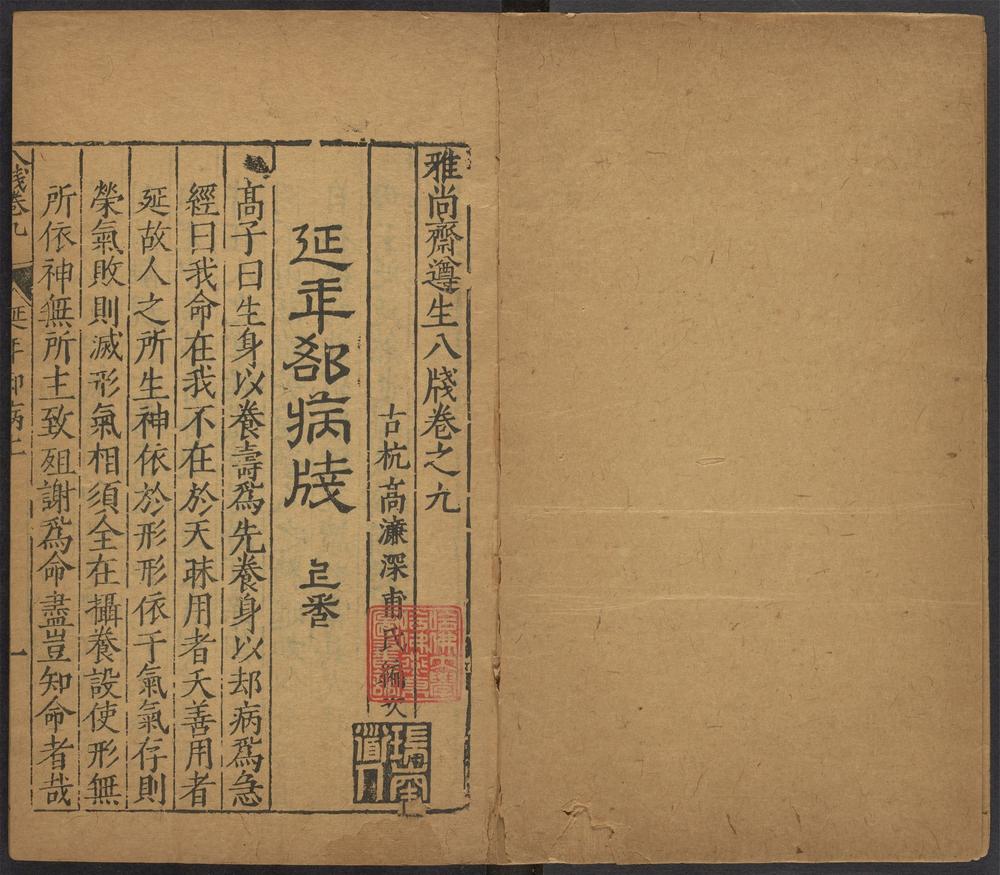 雅尚齋遵生八牋卷之九
古杭高濂深甫氏編次
延年郤病牋
上卷
高子曰生身以養壽爲先養身以却病爲急
經曰我命在我不在於天昧用者夭善用者
延故人之所生神依於形形依于氣氣存則
榮氣敗則滅形氣相須全在攝養設使形無
所依神無所主致殂謝爲命盡豈知命者哉
八牋卷九
延年却病上
一